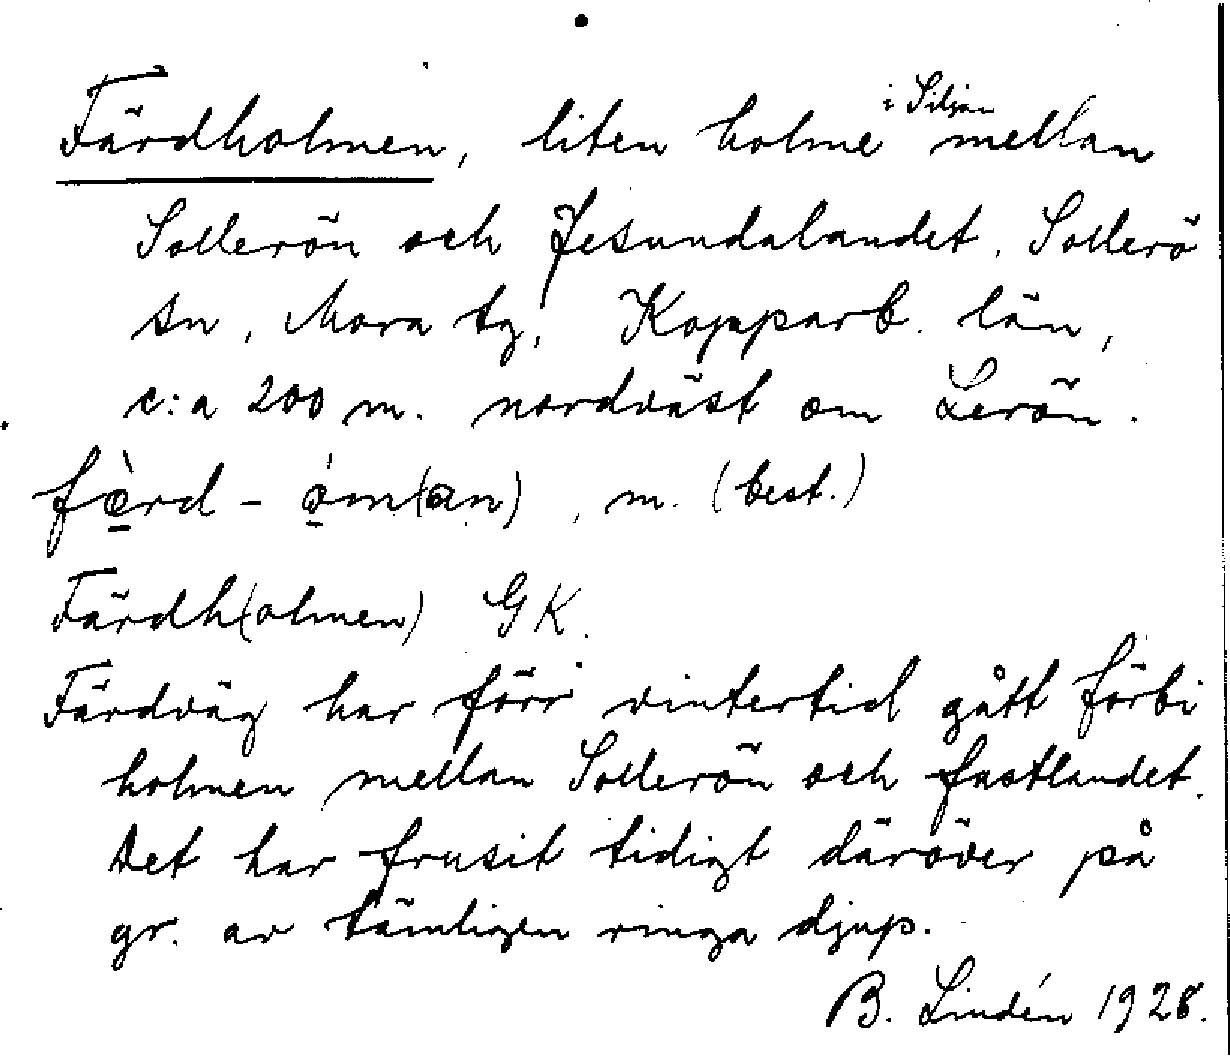 Färdholmen, liten holme i Siljan mellan
Sollerön och Gesundalandet. Sollerö
sn, Mora tg, Kopparb. län,
c:a 200 m. nordväst om Lerön.
fæ̀rd - óm(an), m. (best.)
Färdh(olmen) GK.
Färdväg har förr vintertid gått förbi
holmen mellan Sollerön och fastlandet.
Det har frusit tidigt däröver på
gr. av tämligen ringa djup.
B. Lindén 1928.